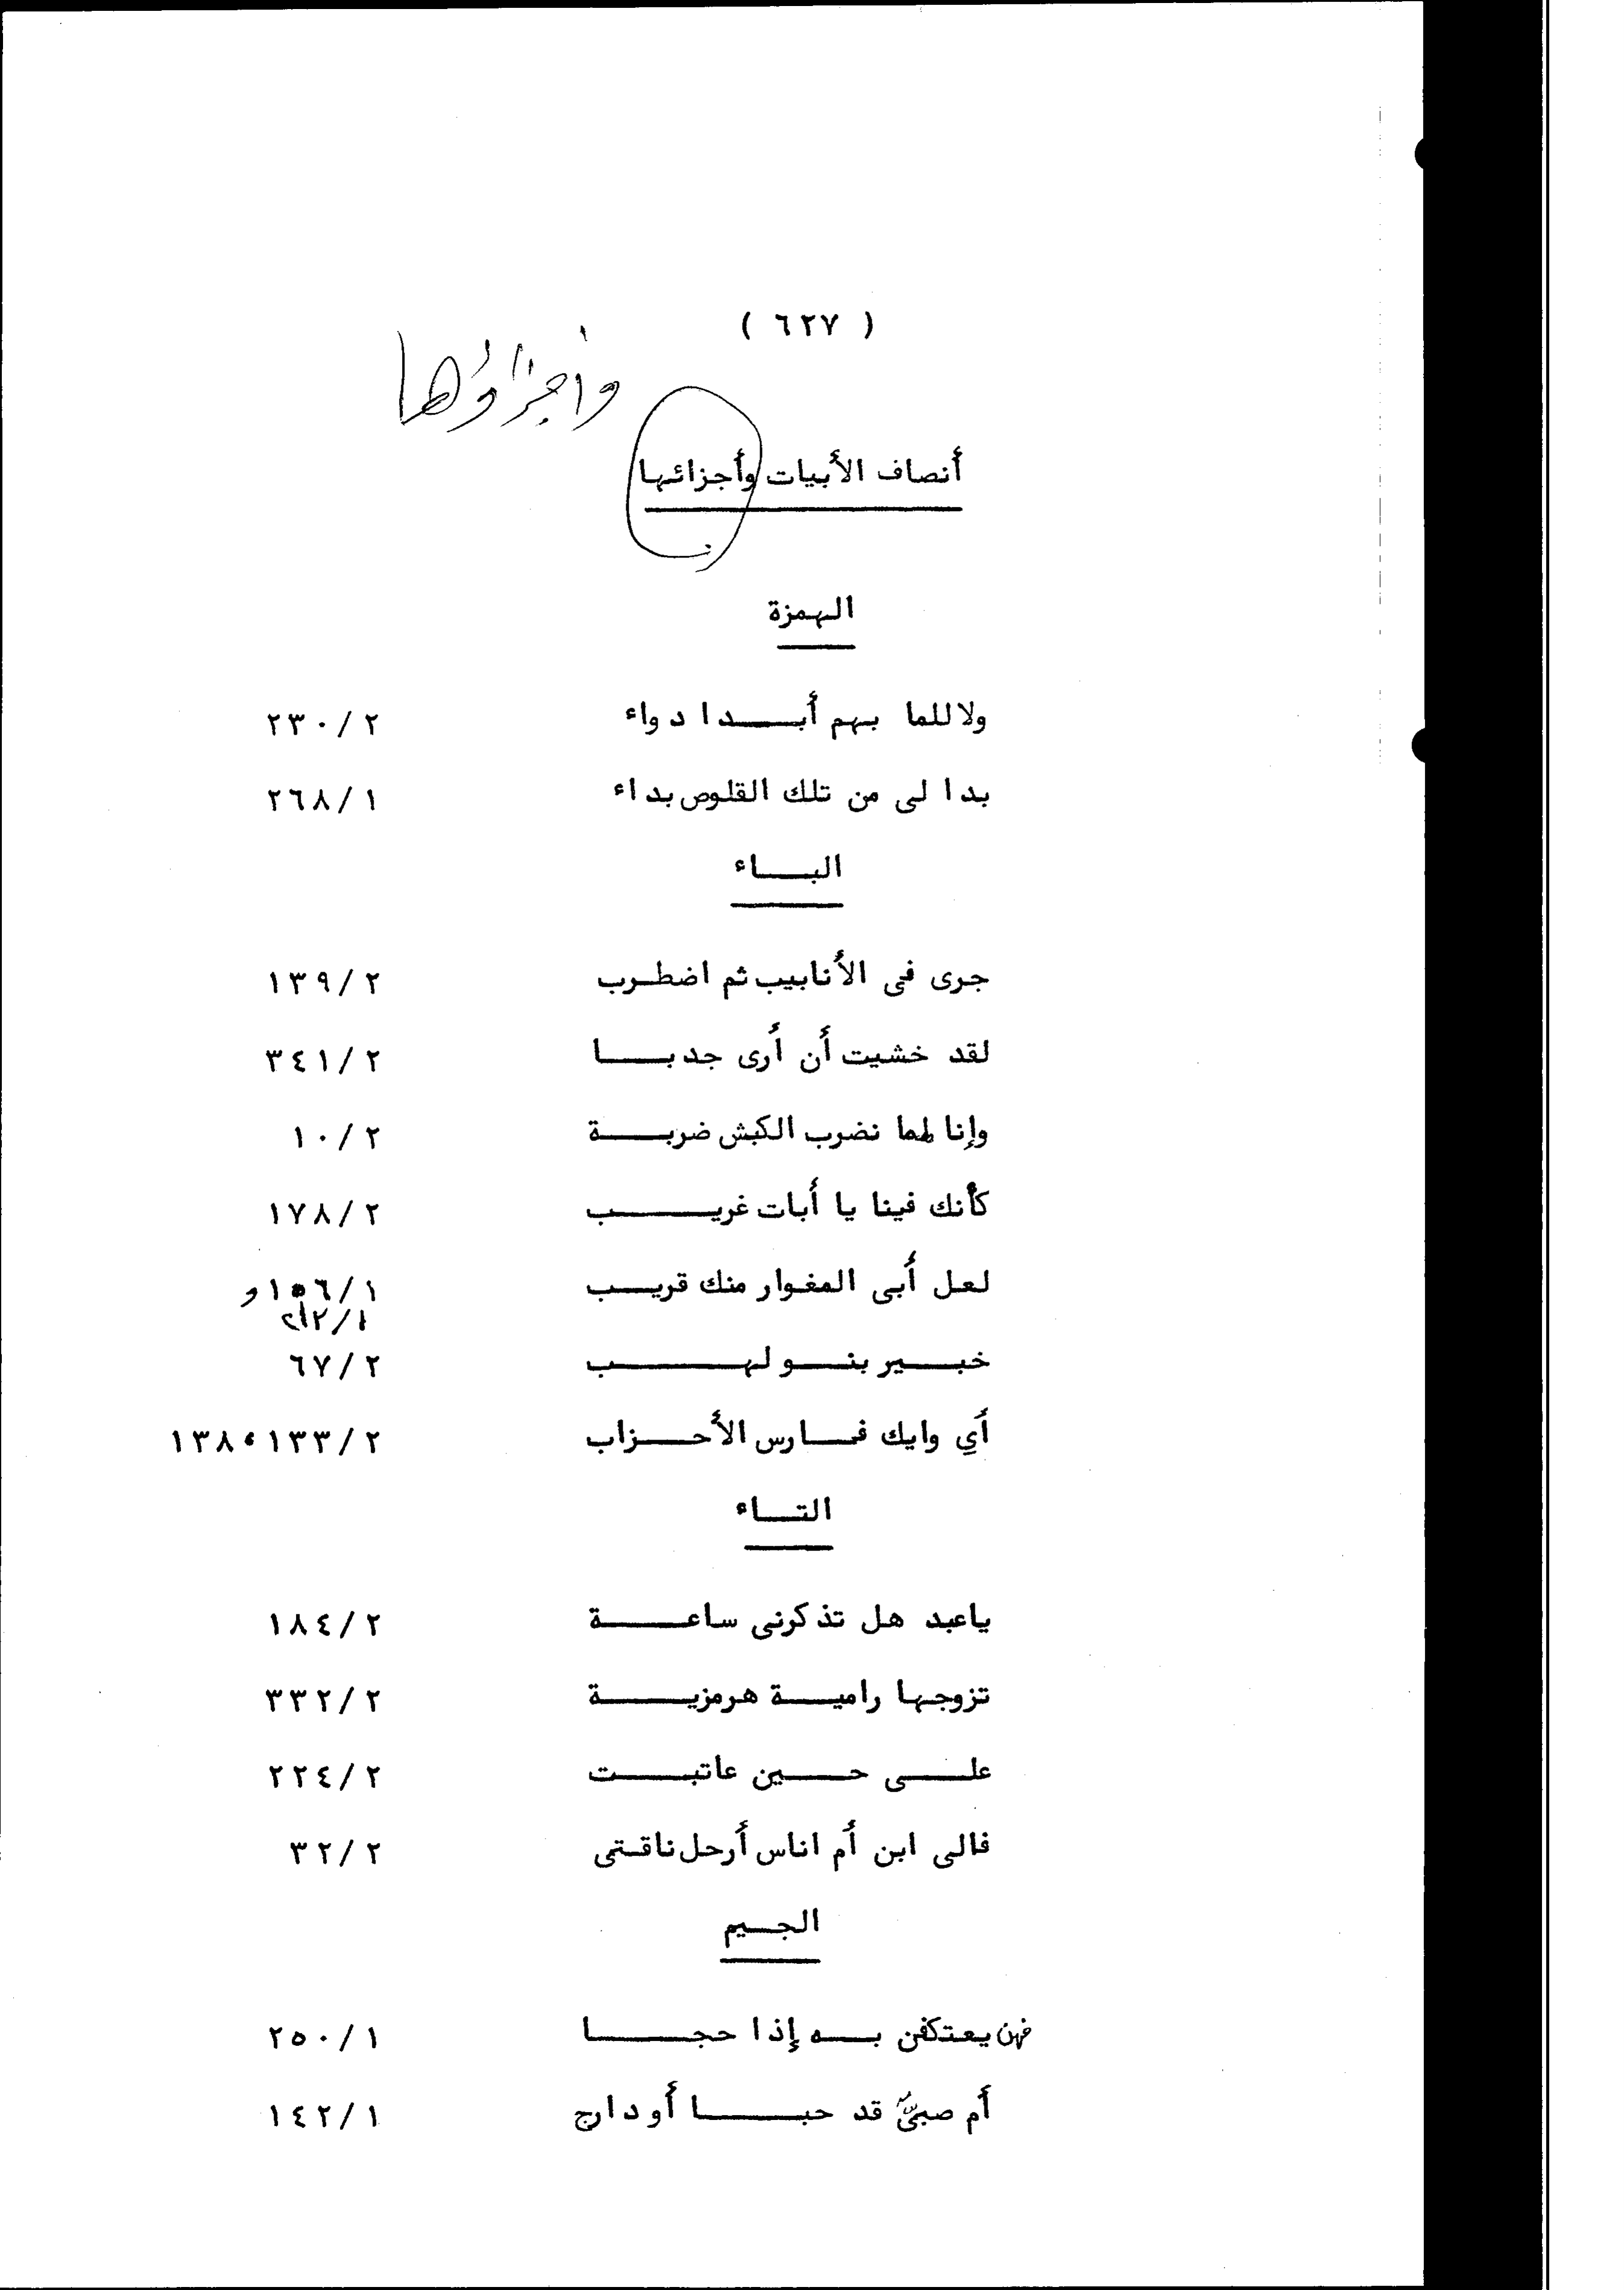 ( ٦٢٧ )
وأجزاؤها
أنصاف الأبيات وأجزائها
الهمزة
ولا للما بهم أبدا دواء ٢٣٠/٢
بدا لى من تلك القلوص بداء ٢٦٨/١
الباء
جرى فى الأنابيب ثم اضطرب ١٣٩/٢
لقد خشيت أن أرى جدبا ٣٤١/٢
وإنا لمما نضرب الكبش ضربة ١٠/٢
كأنك فينا يا أبات غريب ١٧٨/٢
لعل أبى المغوار منك قريب ١٥٦/١ و
خبير بنو لهب ٦٧/٢
أي وايك فارس الأحزاب ١٣٨،١٣٣/٢
التاء
ياعبد هل تذكرنى ساعة ١٨٤/٢
تزوجها رامية هرمزية ٣٣٢/٢
على حين عاتبت ٢٢٤/٢
فالى ابن أم اناس أرحل ناقتى ٣٢/٢
الجيم
فهن يعتكفن به إذا حجا ٢٥٠/١
أم صبيّ قد حبا أو دارج ١٤٢/١